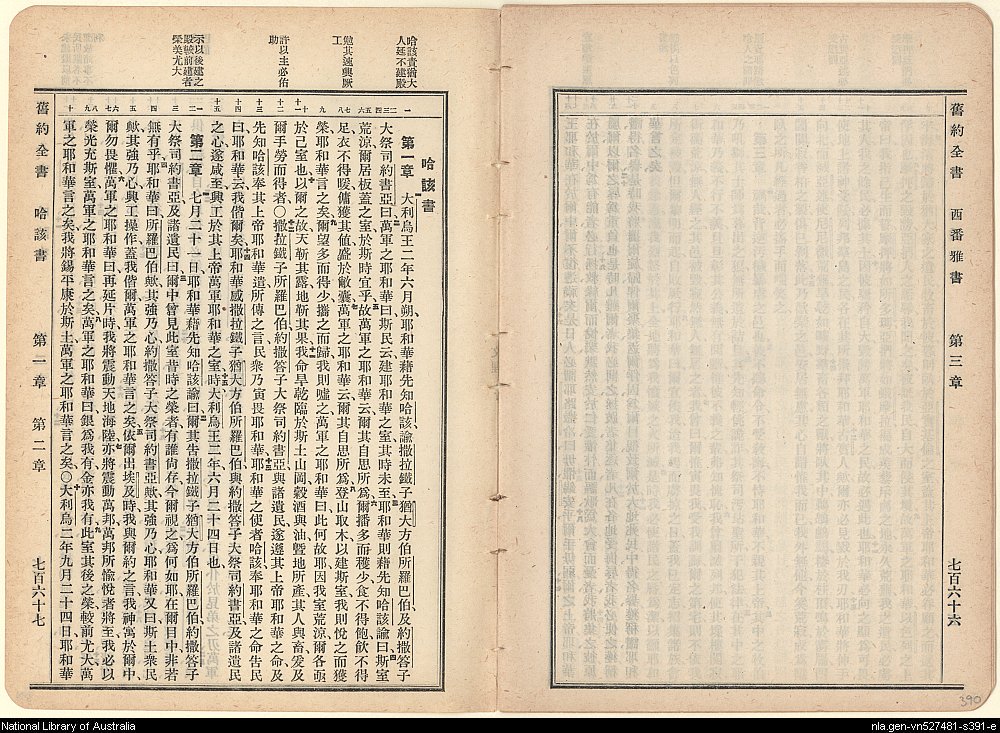 舊約全書 西番雅書 第三章 七百六十六
哈該責猶大
人延不建殿
勉其速興厥
工
許以主必佑
助
示以後建之
殿較前建者
榮美尤大
哈該書
第一章 大利烏王二年六月朔、耶和華藉先知哈該諭撒拉鐵子猶大方伯所羅巴伯及約撒答子
大祭司約書亞曰、萬軍之耶和華曰、斯民云、建耶和華之室、其時未至、耶和華則藉先知哈該諭曰、斯室
荒涼、爾居板蓋之室、於斯時宜乎、故萬軍之耶和華云、爾其自思所爲、爾播多而穫少、食不得飽、飲不得
足、衣不得暖、傭獲其値、盛於敝囊、萬軍之耶和華云、爾其自思所爲、登山取木、以建斯室、我則悅之而獲
榮、耶和華言之矣、爾望多而得少、攜之而歸、我則噓之、萬軍之耶和華曰、此何故耶、因我室荒涼、爾各亟
於己室也、以爾之故、天靳其露、地靳其果、我命旱乾臨於斯土山岡、穀酒與油、曁地所產、其人與畜、爰及
爾手勞而得者、○撒拉鐵子所羅巴伯、約撒答子大祭司約書亞、與諸遺民、遂遵其上帝耶和華之命、及
先知哈該奉其上帝耶和華遣所傳之言、民衆乃寅畏耶和華、耶和華之使者哈該、奉耶和華之命告民
曰、耶和華云、我偕爾矣、耶和華感撒拉鐵子猶大方伯所羅巴伯、與約撒答子大祭司約書亞、及諸遺民
之心、遂咸至、興工於其上帝萬軍耶和華之室、時大利烏王二年六月二十四日也、
第二章 七月二十一日、耶和華藉先知哈該諭曰、爾其告撒拉鐵子猶大方伯所羅巴伯、約撒答子
大祭司約書亞、及諸遺民曰、爾中曾見此室昔時之榮者、有誰尙存、今爾視之爲何如耶、在爾目中、非若
無有乎、耶和華曰、所羅巴伯歟、其強乃心、約撒答子大祭司約書亞歟、其強乃心、耶和華又曰、斯土衆民
歟、其強乃心、興工操作、蓋我偕爾、萬軍之耶和華言之矣、依爾出埃及時、我與爾約之言、我神寓於爾中、
爾勿畏懼、萬軍之耶和華曰、再延片時、我將震動天地海陸、亦將震動萬邦、萬邦所愉悅者將至、我必以
榮光充斯室、萬軍之耶和華言之矣、萬軍之耶和華曰、銀爲我有、金亦我有、此室其後之榮、較前尤大、萬
軍之耶和華言之矣、我將錫平康於斯土、萬軍之耶和華言之矣、○大利烏二年九月二十四日、耶和華
舊約全書 哈該書 第一章 第二章 七百六十七
390
National Library of Australia
nla.gen-vn527481-s391-e